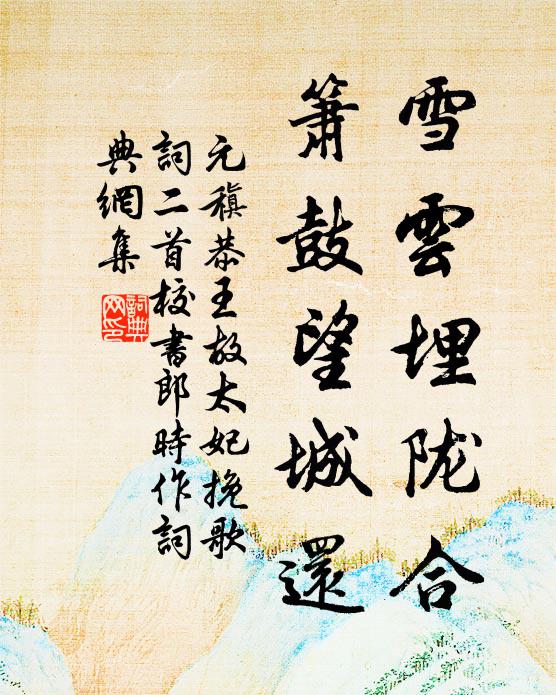 雪雲埋陇合
簫鼓望城還
元稹恭王故太妃挽歌
詞二首校書郎時作詞
典網集
詞典网印